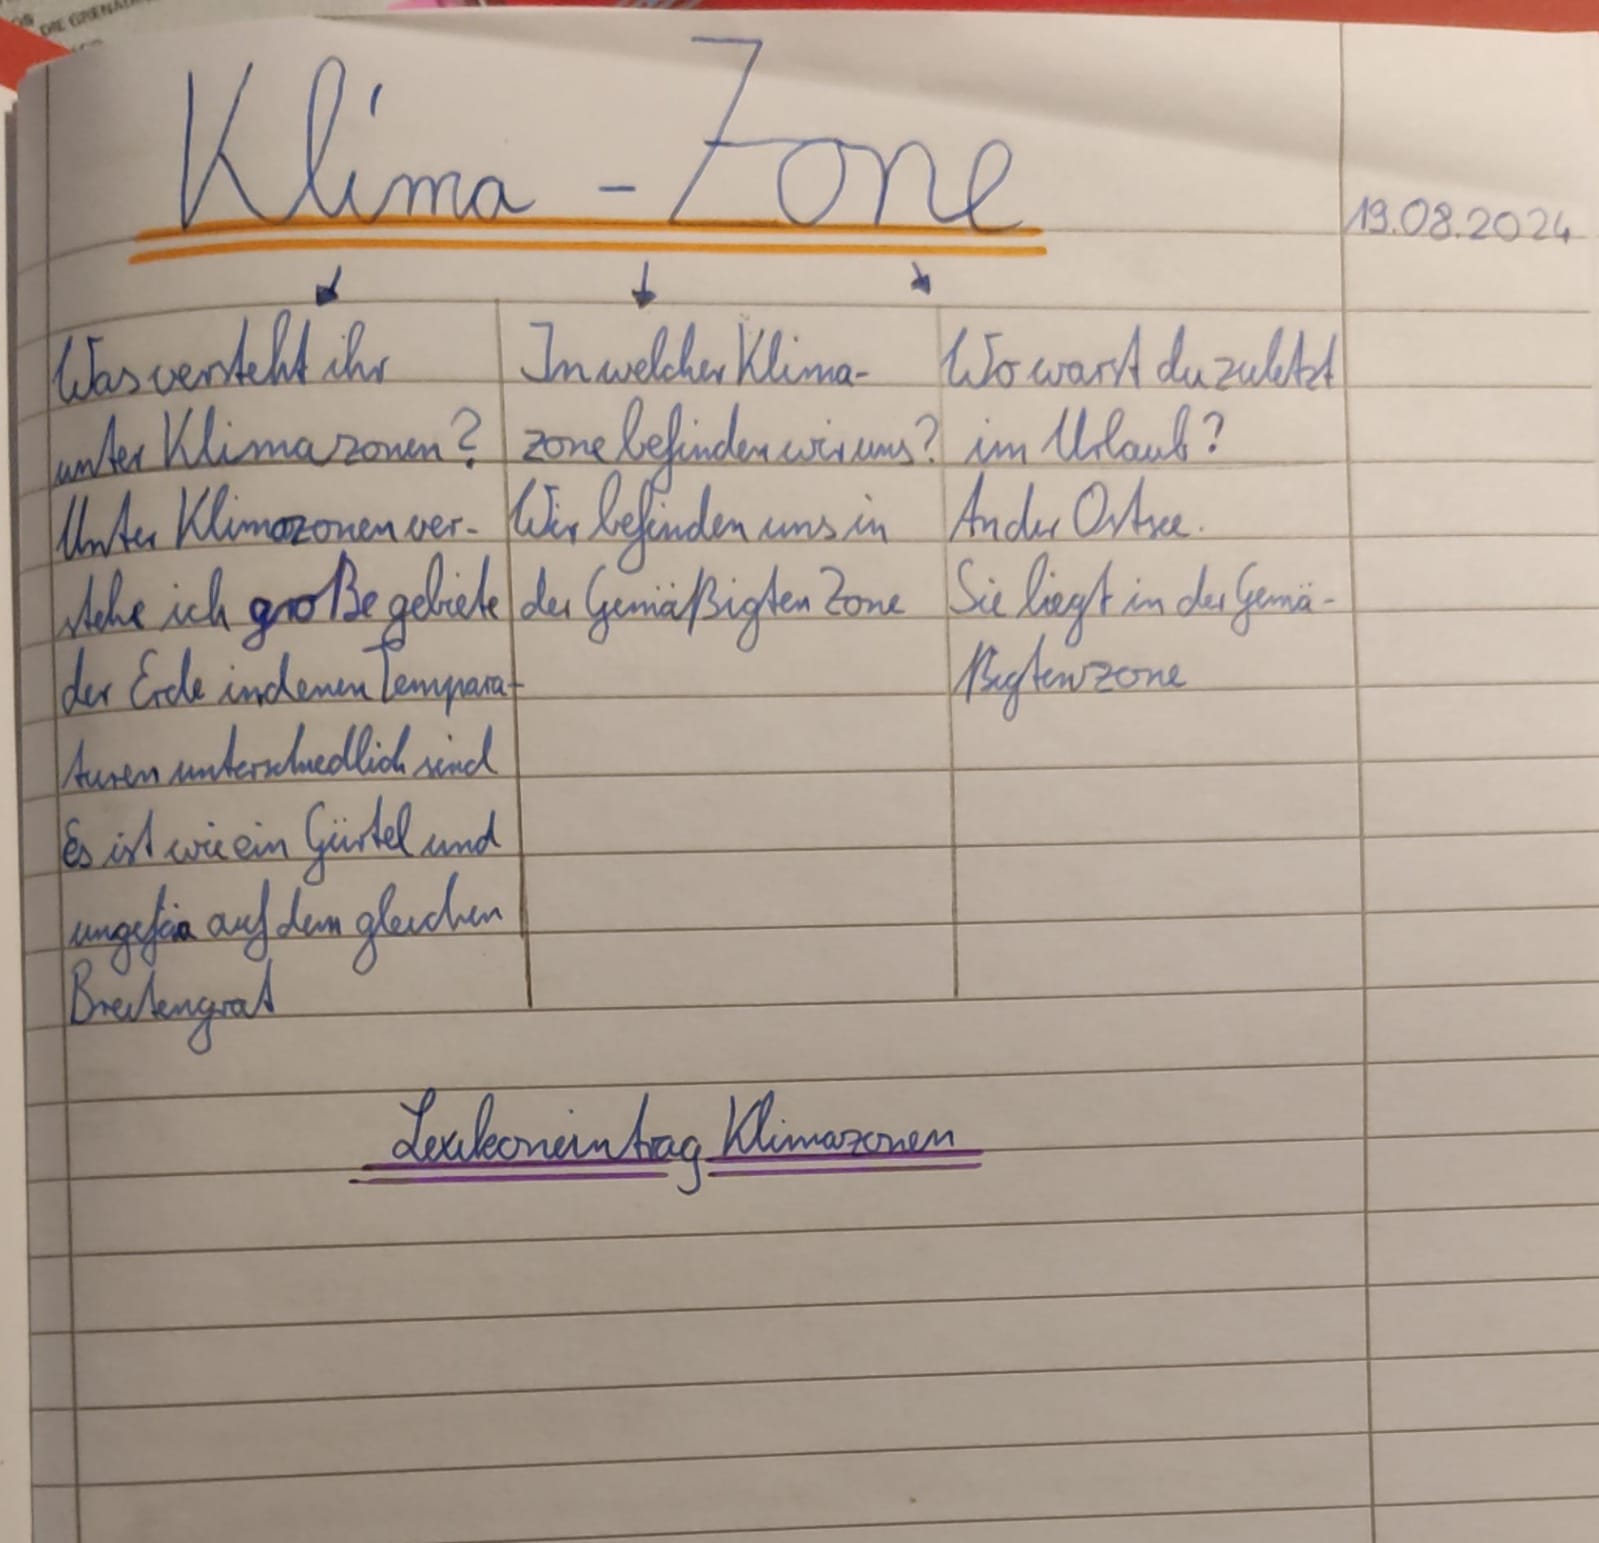 DIE GRENA
Klima - Zone
19.08.2024
Was versteht ihr
unter Klimazonen?
Unter Klimazonen ver-
stehe ich große gebiete
der Erde indenen Tempara-
turen unterschiedlich sind
Es ist wie ein Gürtel und
ungefär auf dem gleichen
Breitengrat
In welcher Klima-
zone befinden wir uns?
Wir befinden uns in
der Gemäßigten Zone
Wo warst du zuletzt
im Urlaub?
An der Ostsee.
Sie liegt in der Gemä-
ßigten zone
Lexikoneintrag Klimazonen